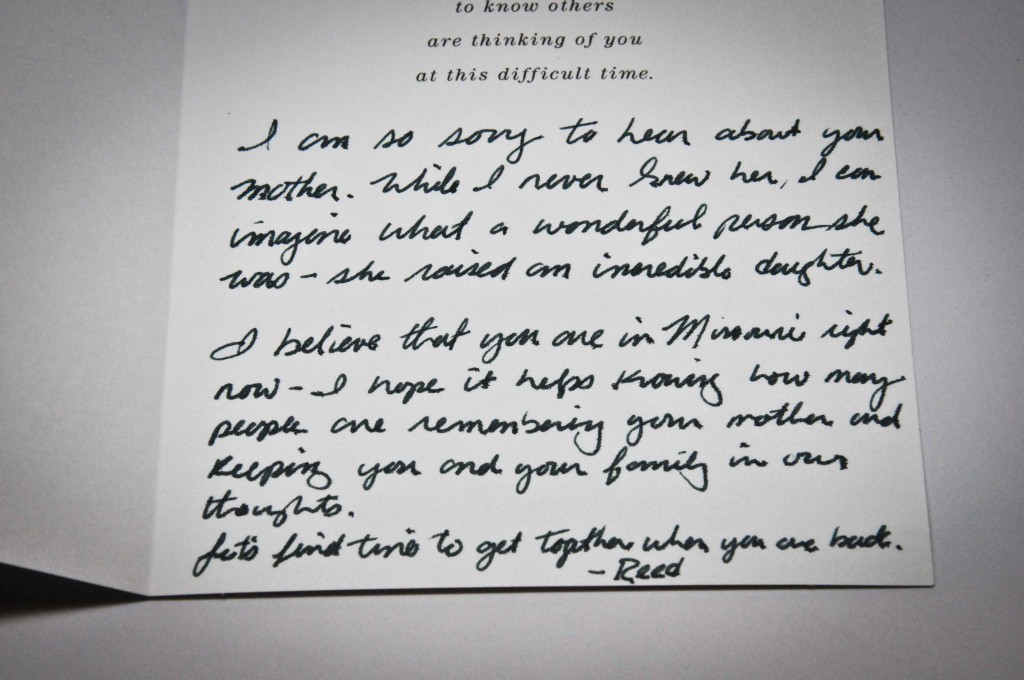 to know others
are thinking of you
at this difficult time.
I am so sorry to hear about your
mother. While I never knew her, I can
imagine what a wonderful person she
was - she raised an incredible daughter.
I believe that you are in Missouri right
now - I hope it helps knowing how many
people are remembering your mother and
keeping you and your family in our
thoughts.
Let's find time to get together when you are back.
- Reed